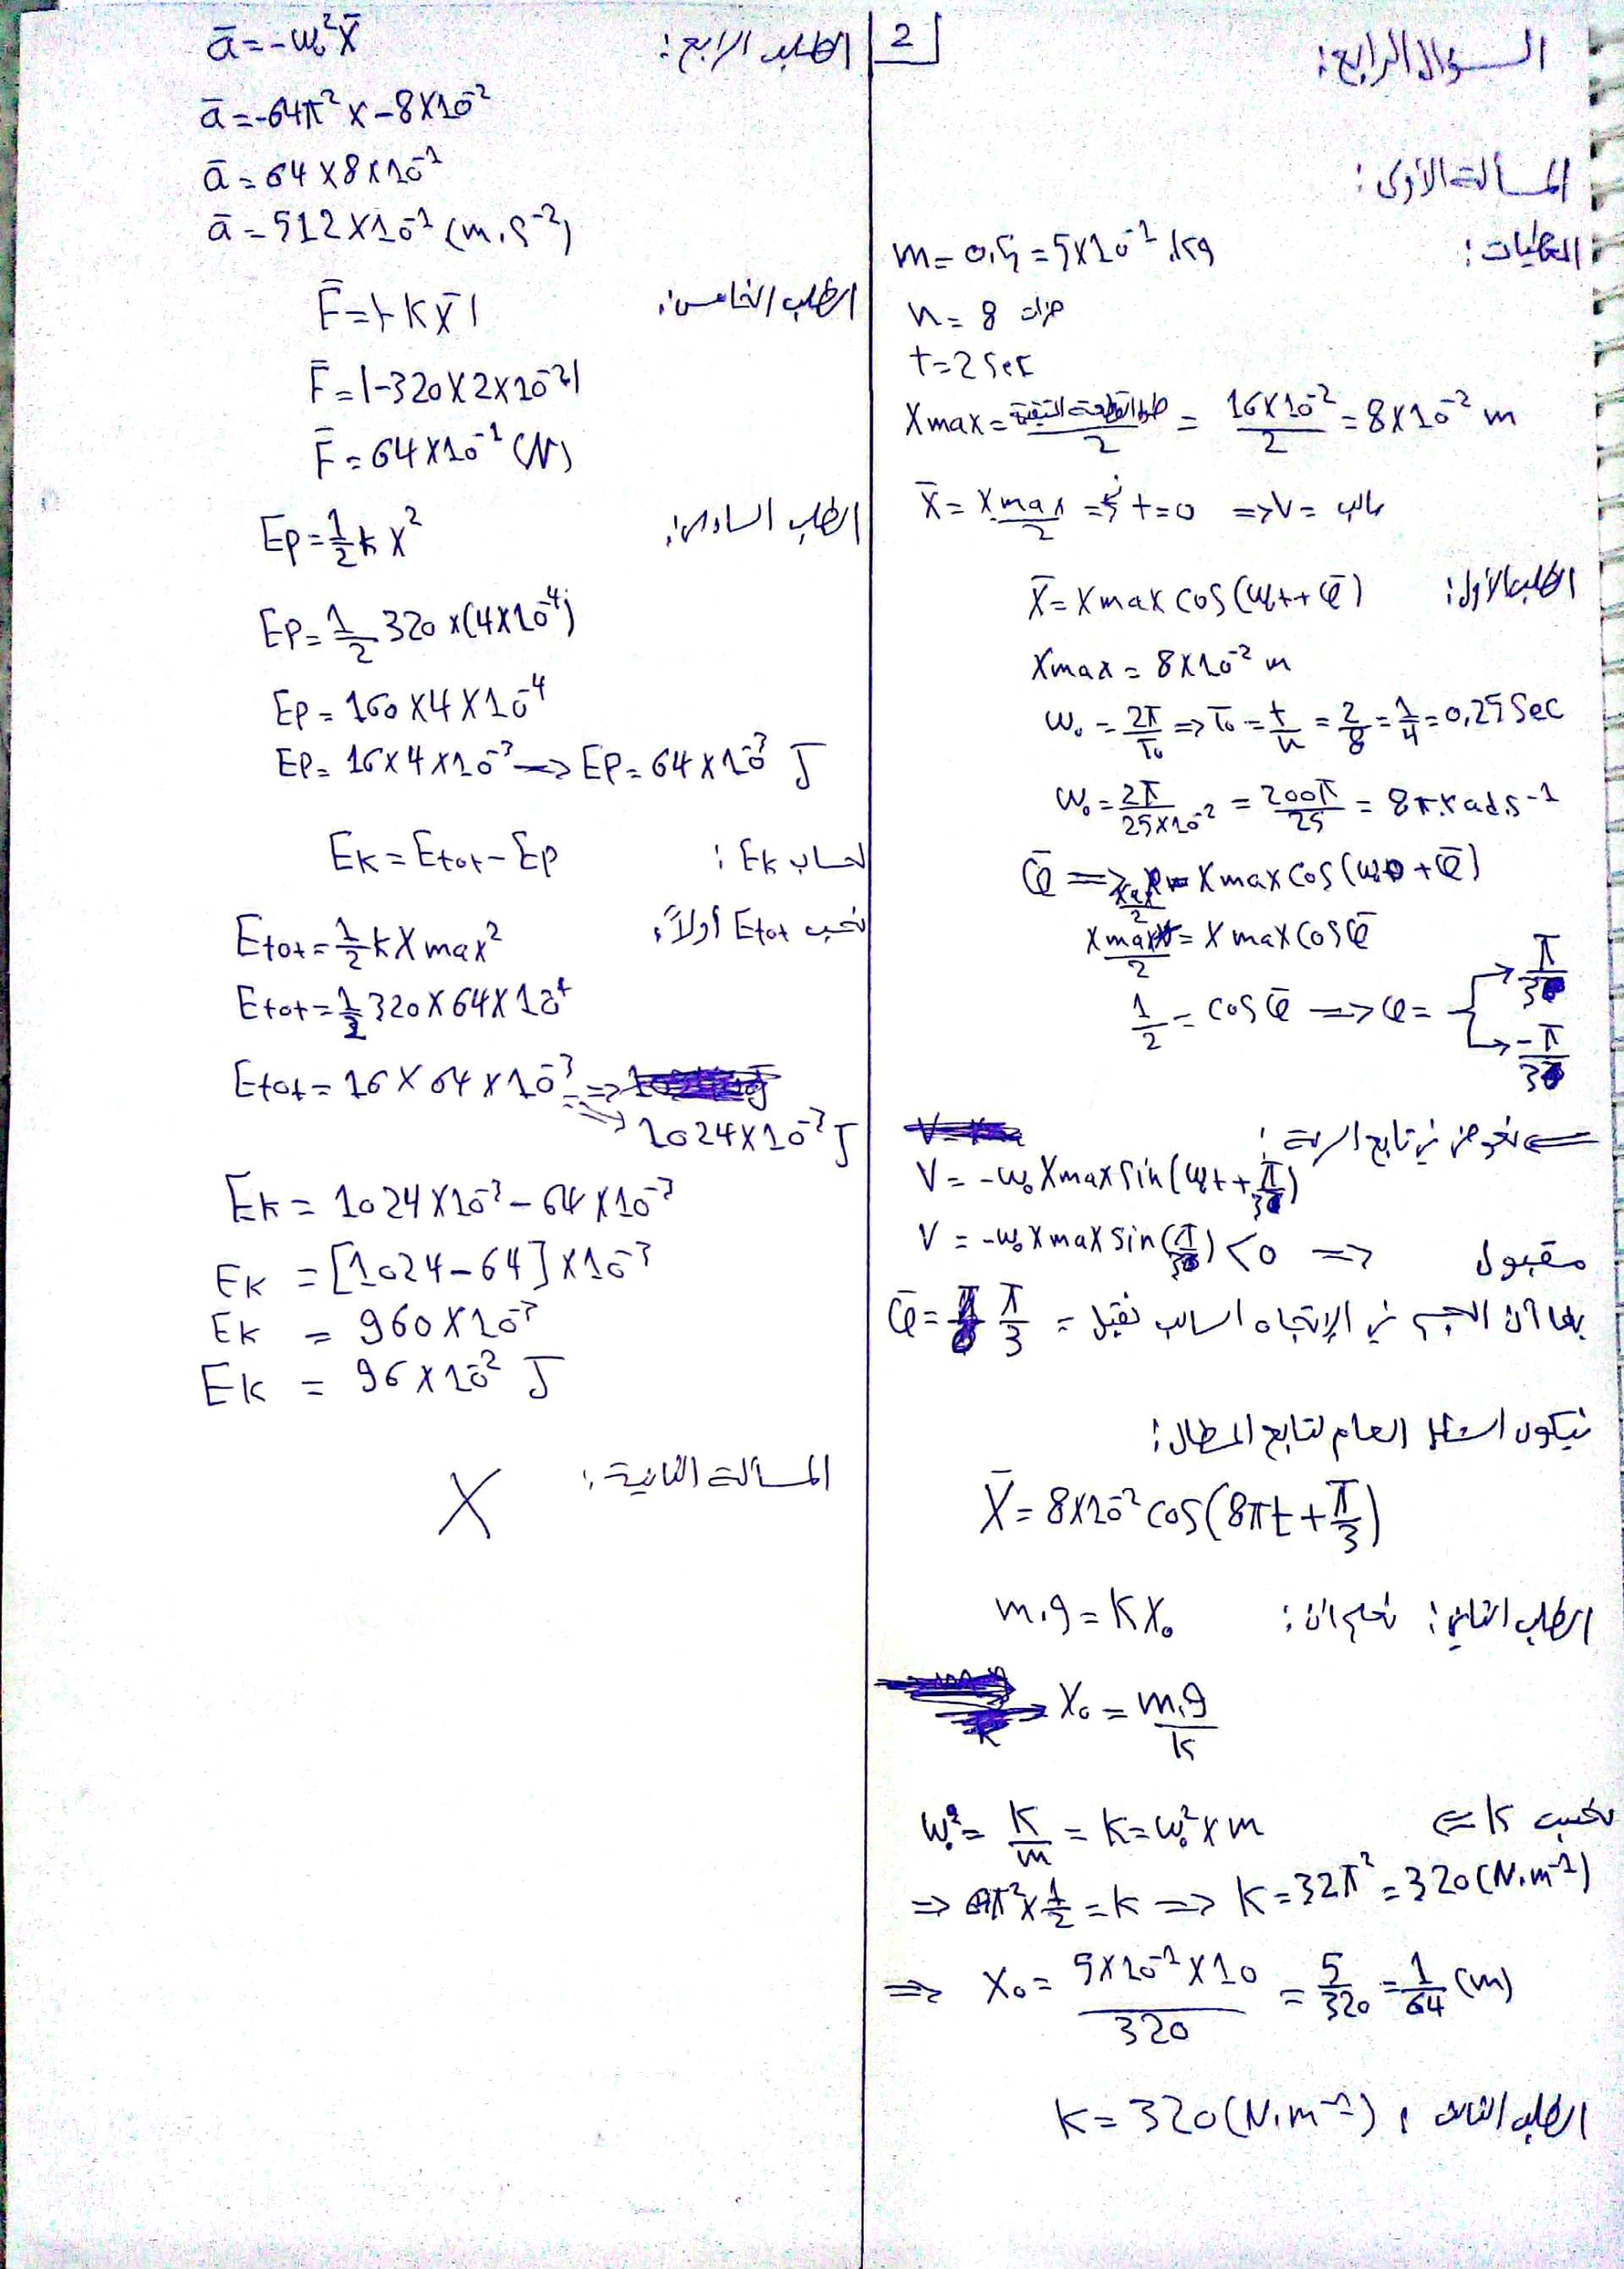 السؤال الرابع:
المسألة الأولى:
المعطيات:
m = 0,5 = 5×10⁻¹ kg
n = 8 هزات
t = 2 Sec
Xmax = طول القطعة المستقيمة / 2 = 16×10⁻² / 2 = 8×10⁻² m
X̄ = Xmax/2 ⇐ t=0 => V = سالب
الطلب الأول: X̄ = Xmax cos(ω₀t + φ̄)
Xmax = 8×10⁻² m
ω₀ = 2π/T₀ => T₀ = t/n = 2/8 = 1/4 = 0,25 Sec
ω₀ = 2π / 25×10⁻² = 200π / 25 = 8π rad.s⁻¹
φ̄ => Xmax/2 = Xmax cos(ω₀0 + φ̄)
Xmax/2 = Xmax cos φ̄
1/2 = cos φ̄ => φ = π/3
-π/3
<= نعوض في تابع السرعة:
V = -ω₀ Xmax sin(ω₀t + π/3)
V = -ω₀ Xmax sin(π/3) < 0 => مقبول
بما أن الجسم في الإتجاه السالب نقبل = φ̄ = π/3
فيكون الشكل العام لتابع المطال:
X̄ = 8×10⁻² cos(8πt + π/3)
الطلب الثاني: نعلم أن: m.g = K X₀
X₀ = m.g / K
نحسب K <=
ω₀² = K/m = K = ω₀² × m
=> 64π² × 1/2 = K => K = 32π² = 320 (N.m⁻¹)
=> X₀ = 5×10⁻¹ × 10 / 320 = 5/320 = 1/64 (m)
الطلب الثالث: K = 320 (N.m⁻¹)
2
الطلب الرابع: ā = -ω₀² X̄
ā = -64π² × -8×10⁻²
ā = 64 × 8 × 10⁻¹
ā = 512 × 10⁻¹ (m.s⁻²)
الطلب الخامس: F̄ = |-K X̄|
F̄ = |-320 × 2×10⁻²|
F̄ = 64×10⁻¹ (N)
الطلب السادس: Ep = 1/2 k X²
Ep = 1/2 320 × (4×10⁻⁴)
Ep = 160 × 4 × 10⁻⁴
Ep = 16×4×10⁻³ => Ep = 64×10⁻³ J
لحساب Ek: Ek = Etot - Ep
نحسب Etot أولاً: Etot = 1/2 k Xmax²
Etot = 1/2 320 × 64 × 10⁻⁴
Etot = 16 × 64 × 10⁻³ =>
=> 1024×10⁻³ J
Ek = 1024×10⁻³ - 64×10⁻³
Ek = [1024 - 64] × 10⁻³
Ek = 960×10⁻³
Ek = 96×10⁻² J
المسألة الثانية: X